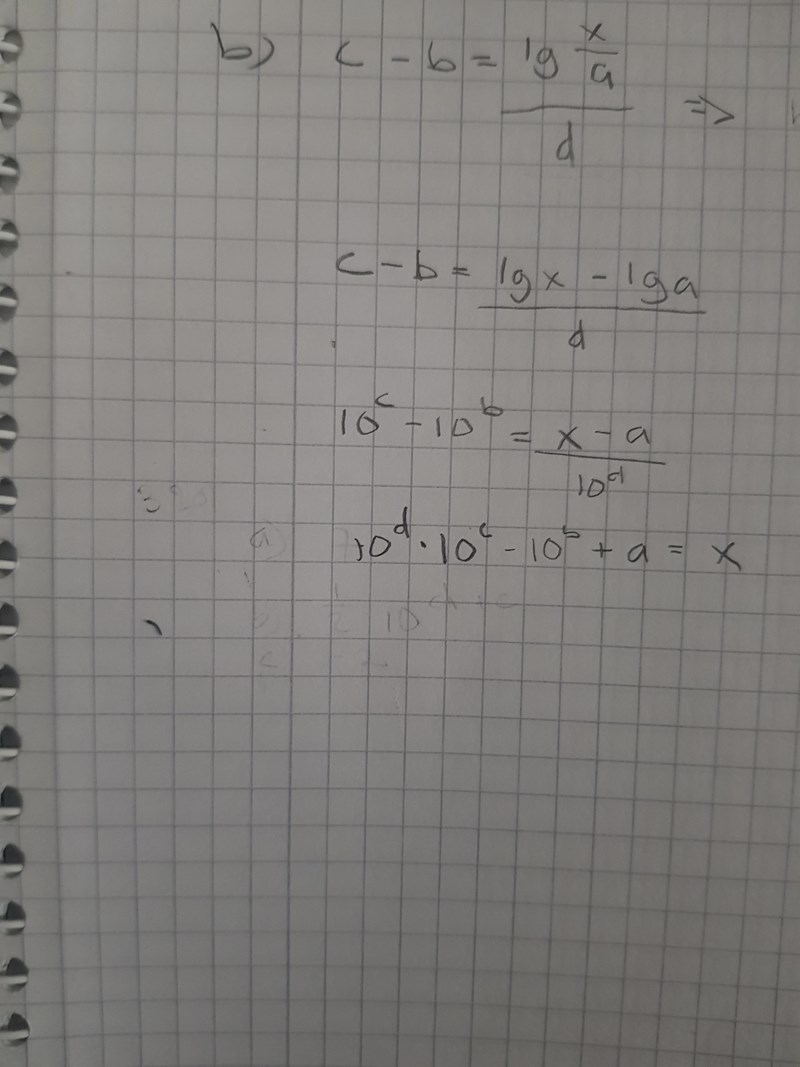 b) c - b = lg x/a / d =>
c - b = lg x - lg a / d
10^c - 10^b = x - a / 10^d
10^d · 10^c - 10^b + a = x